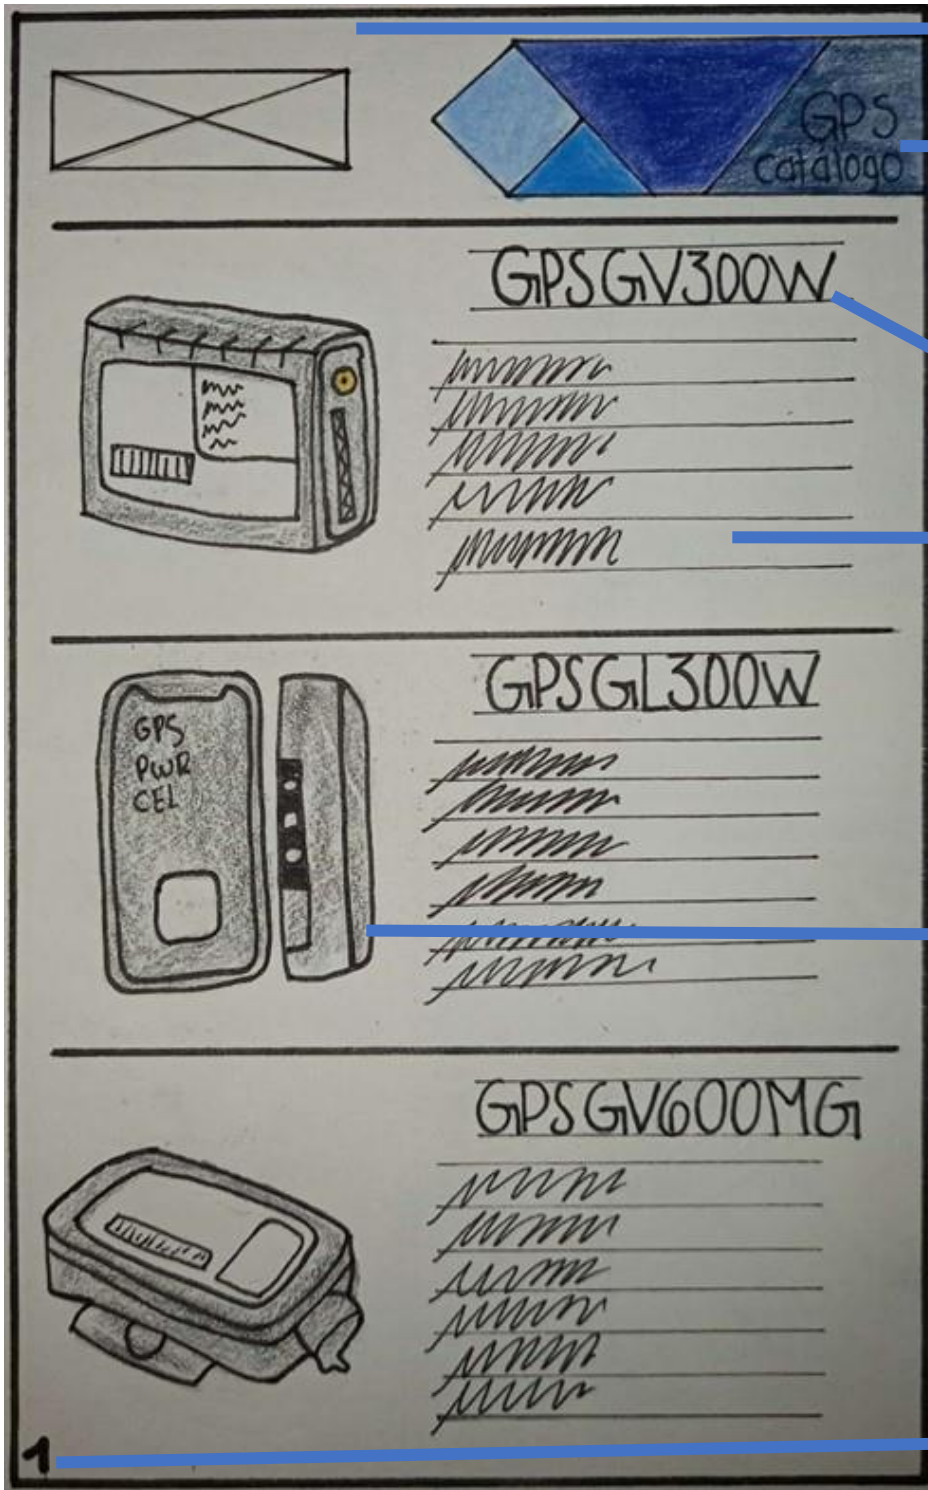 GPS
catálogo
GPS GV300W
GPS GL300W
GPS
PWR
CEL
GPS GV600MG
1